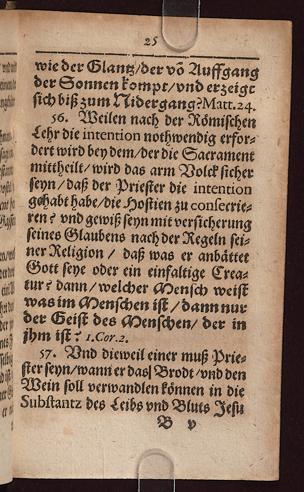 25
wie der Glantz/der võ Auffgang
der Sonnen kompt/vnd erzeigt
sich biß zum Nidergang? Matt. 24.
56. Weilen nach der Römischen
Lehr die intention nothwendig erfor-
dert wird bey dem/der die Sacrament
mittheilt/wird das arm Volck sicher
seyn/daß der Priester die intention
gehabt habe/die Hostien zu consecrie-
ren? vnd gewiß seyn mit versicherung
seines Glaubens nach der Regeln sei-
ner Religion/ daß was er anbättet
Gott seye oder ein einfaltige Crea-
tur? dann/welcher Mensch weist
was im Menschen ist/dann nur
der Geist des Menschen/der in
jhm ist? 1. Cor. 2.
57. Vnd dieweil einer muß Prie-
ster seyn/wann er das Brodt/vnd den
Wein soll verwandlen können in die
Substantz des Leibs vnd Bluts Jesu
B v